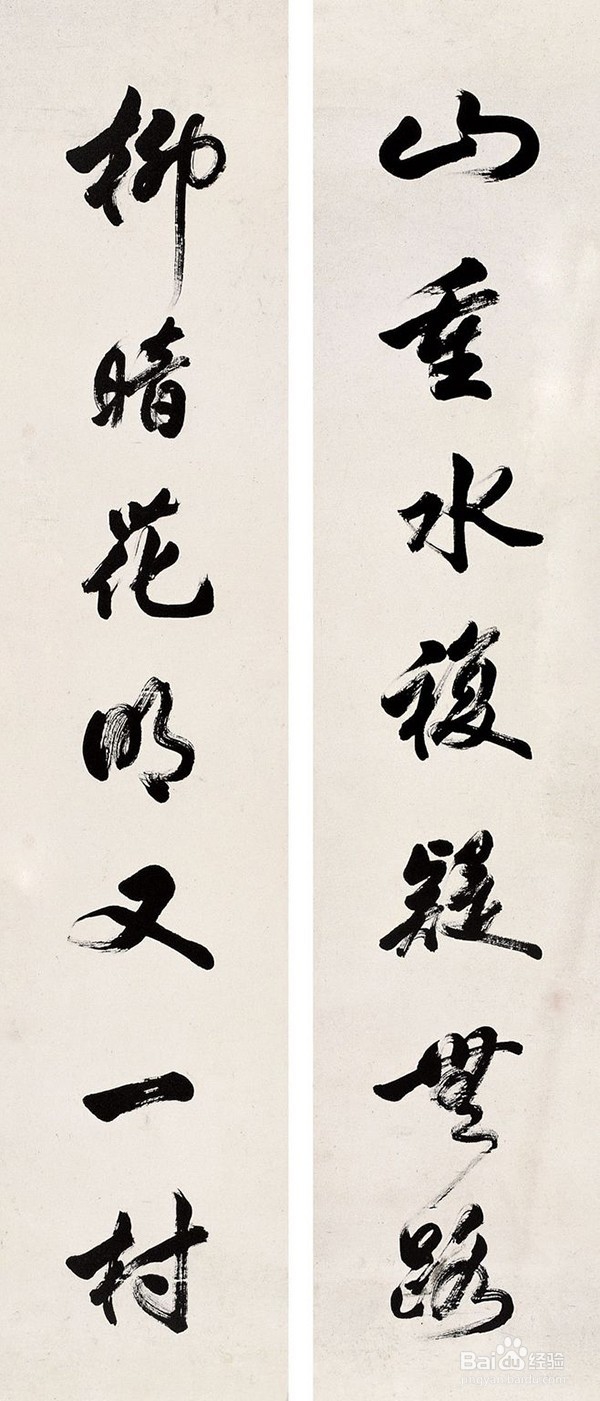 山重水複疑無路
柳暗花明又一村
Baidu经验
jingyan.baidu.com